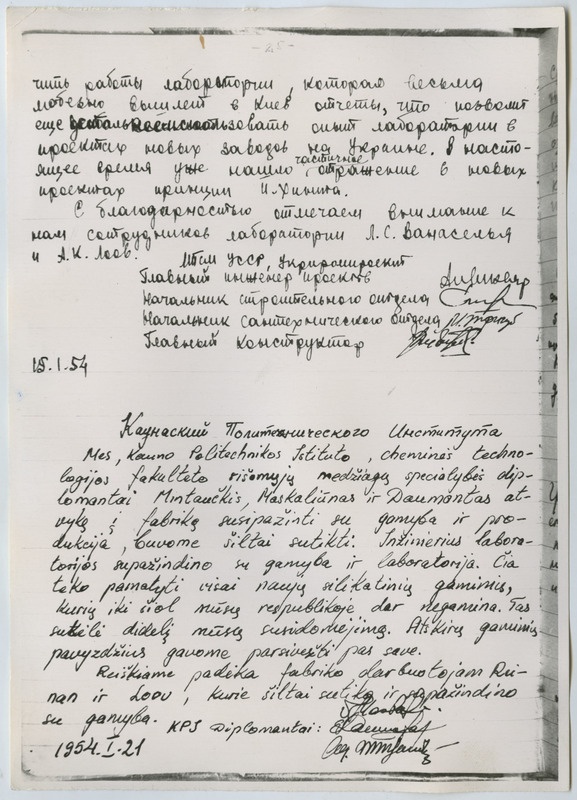 - 25 -
чить работы лаборатории, которая весьма
любезно вышлет в Киев отчеты, что позволит
еще использовать опыт лаборатории в
проектах новых заводов на Украине. В насто-
ящее время уже нашло частичное отражение в новых
проектах принцип И. Хинта.
С благодарностью отмечаем внимание к
нам сотрудников лаборатории Л.С. Ванаселья
и А.К. Лоов.
МПСМ УССР, Укргипроект
Главный инженер проектов
Начальник строительного отдела
Начальник сантехнического отдела
Главный конструктор
15.I.54
Каунаский Политехнического Института
Mes, Kauno Politechnikos Istituto, cheminės techno-
logijos fakulteto rišamųjų medžiagų specialybės dip-
lomantai Mintauckis, Maskaliūnas ir Daumantas at-
vyką į fabriką susipažinti su gamyba ir pro-
dukcija, buvome šiltai sutikti. Inžinierius labora-
torijos supažindino su gamyba ir laboratorija. Čia
teko pamatyti visai naujų silikatinių gaminių,
kurių iki šiol mūsų respublikoje dar negamina. Tas
sukėlė didelį mūsų susidomėjimą. Atskirų gaminių
pavyzdžius gavome parsivežti pas save.
Reiškiame padėka fabriko darbuotojam Rii-
man ir Loov, kurie šiltai sutiko ir supažindino
su gamyba.
KPJ Diplomantai:
1954.I-21